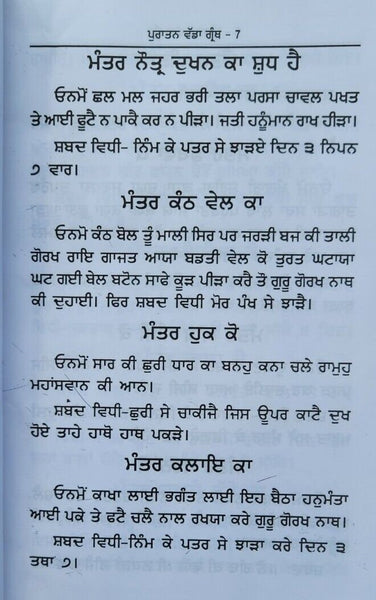 ਪੁਰਾਤਨ ਵੱਡਾ ਗ੍ਰੰਥ - 7
ਮੰਤਰ ਨੌਤ੍ਰ ਦੁਖਨ ਕਾ ਸ਼ੁਧ ਹੈ
ਓਨਮੋਂ ਛਲ ਮਲ ਜਹਰ ਭਰੀ ਤਲਾ ਪਰਸਾ ਚਾਵਲ ਪਖਤ
ਤੇ ਆਈ ਫੂਟੈ ਨ ਪਾਕੈ ਕਰ ਨ ਪੀੜਾ। ਜਤੀ ਹਨੂੰਮਾਨ ਰਾਖ ਹੀੜਾ।
ਸ਼ਬਦ ਵਿਧੀ- ਨਿੰਮ ਕੇ ਪਤਰ ਸੇ ਝਾੜਏ ਦਿਨ ੩ ਨਿਪਨ
੭ ਵਾਰ।
ਮੰਤਰ ਕੰਠ ਵੇਲ ਕਾ
ਓਨਮੋਂ ਕੰਠ ਬੋਲ ਤੂੰ ਮਾਲੀ ਸਿਰ ਪਰ ਜਰੜੀ ਬਜ ਕੀ ਤਾਲੀ
ਗੋਰਖ ਰਾਇ ਗਾਜਤ ਆਯਾ ਬਫਤੀ ਵੇਲ ਕੋ ਤੁਰਤ ਘਟਾਯਾ
ਘਟ ਗਈ ਬੇਲ ਬਟੋਨ ਸਾਫੇ ਕੂੜ ਪੀੜਾ ਕਰੈ ਤੌ ਗੁਰੂ ਗੋਰਖ ਨਾਥ
ਕੀ ਦੁਹਾਈ। ਫਿਰ ਸ਼ਬਦ ਵਿਧੀ ਮੋਰ ਪੰਖ ਸੇ ਝਾੜੈ।
ਮੰਤਰ ਹੁਕ ਕੋ
ਓਨਮੋਂ ਸਾਰ ਕੀ ਛੁਰੀ ਧਾਰ ਕਾ ਬਨਹੁ ਕਨਾ ਚਲੇ ਰਾਮੁਹੁ
ਮਹਾਂਸਵਾਨ ਕੀ ਆਨ।
ਸ਼ਬਦ ਵਿਧੀ-ਛੁਰੀ ਸੇ ਚਾਕੀਜੈ ਜਿਸ ਊਪਰ ਕਾਟੈ ਦੁਖ
ਹੋਏ ਤਾਹੇ ਹਾਥੋ ਹਾਥ ਪਕੜੇ।
ਮੰਤਰ ਕਲਾਇ ਕਾ
ਓਨਮੋਂ ਕਾਖਾ ਲਾਈ ਭਗੰਤ ਲਾਈ ਇਹ ਬੈਠਾ ਹਨੁਮੰਤਾ
ਆਈ ਪਕੇ ਤੇ ਫਟੈ ਚਲੈ ਨਾਲ ਰਖਯਾ ਕਰੇ ਗੁਰੂ ਗੋਰਖ ਨਾਥ।
ਸ਼ਬਦ ਵਿਧੀ-ਨਿੰਮ ਕੇ ਪਤਰ ਸੇ ਝਾੜਾ ਕਰੇ ਦਿਨ ੩
ਤਥਾ ੭।